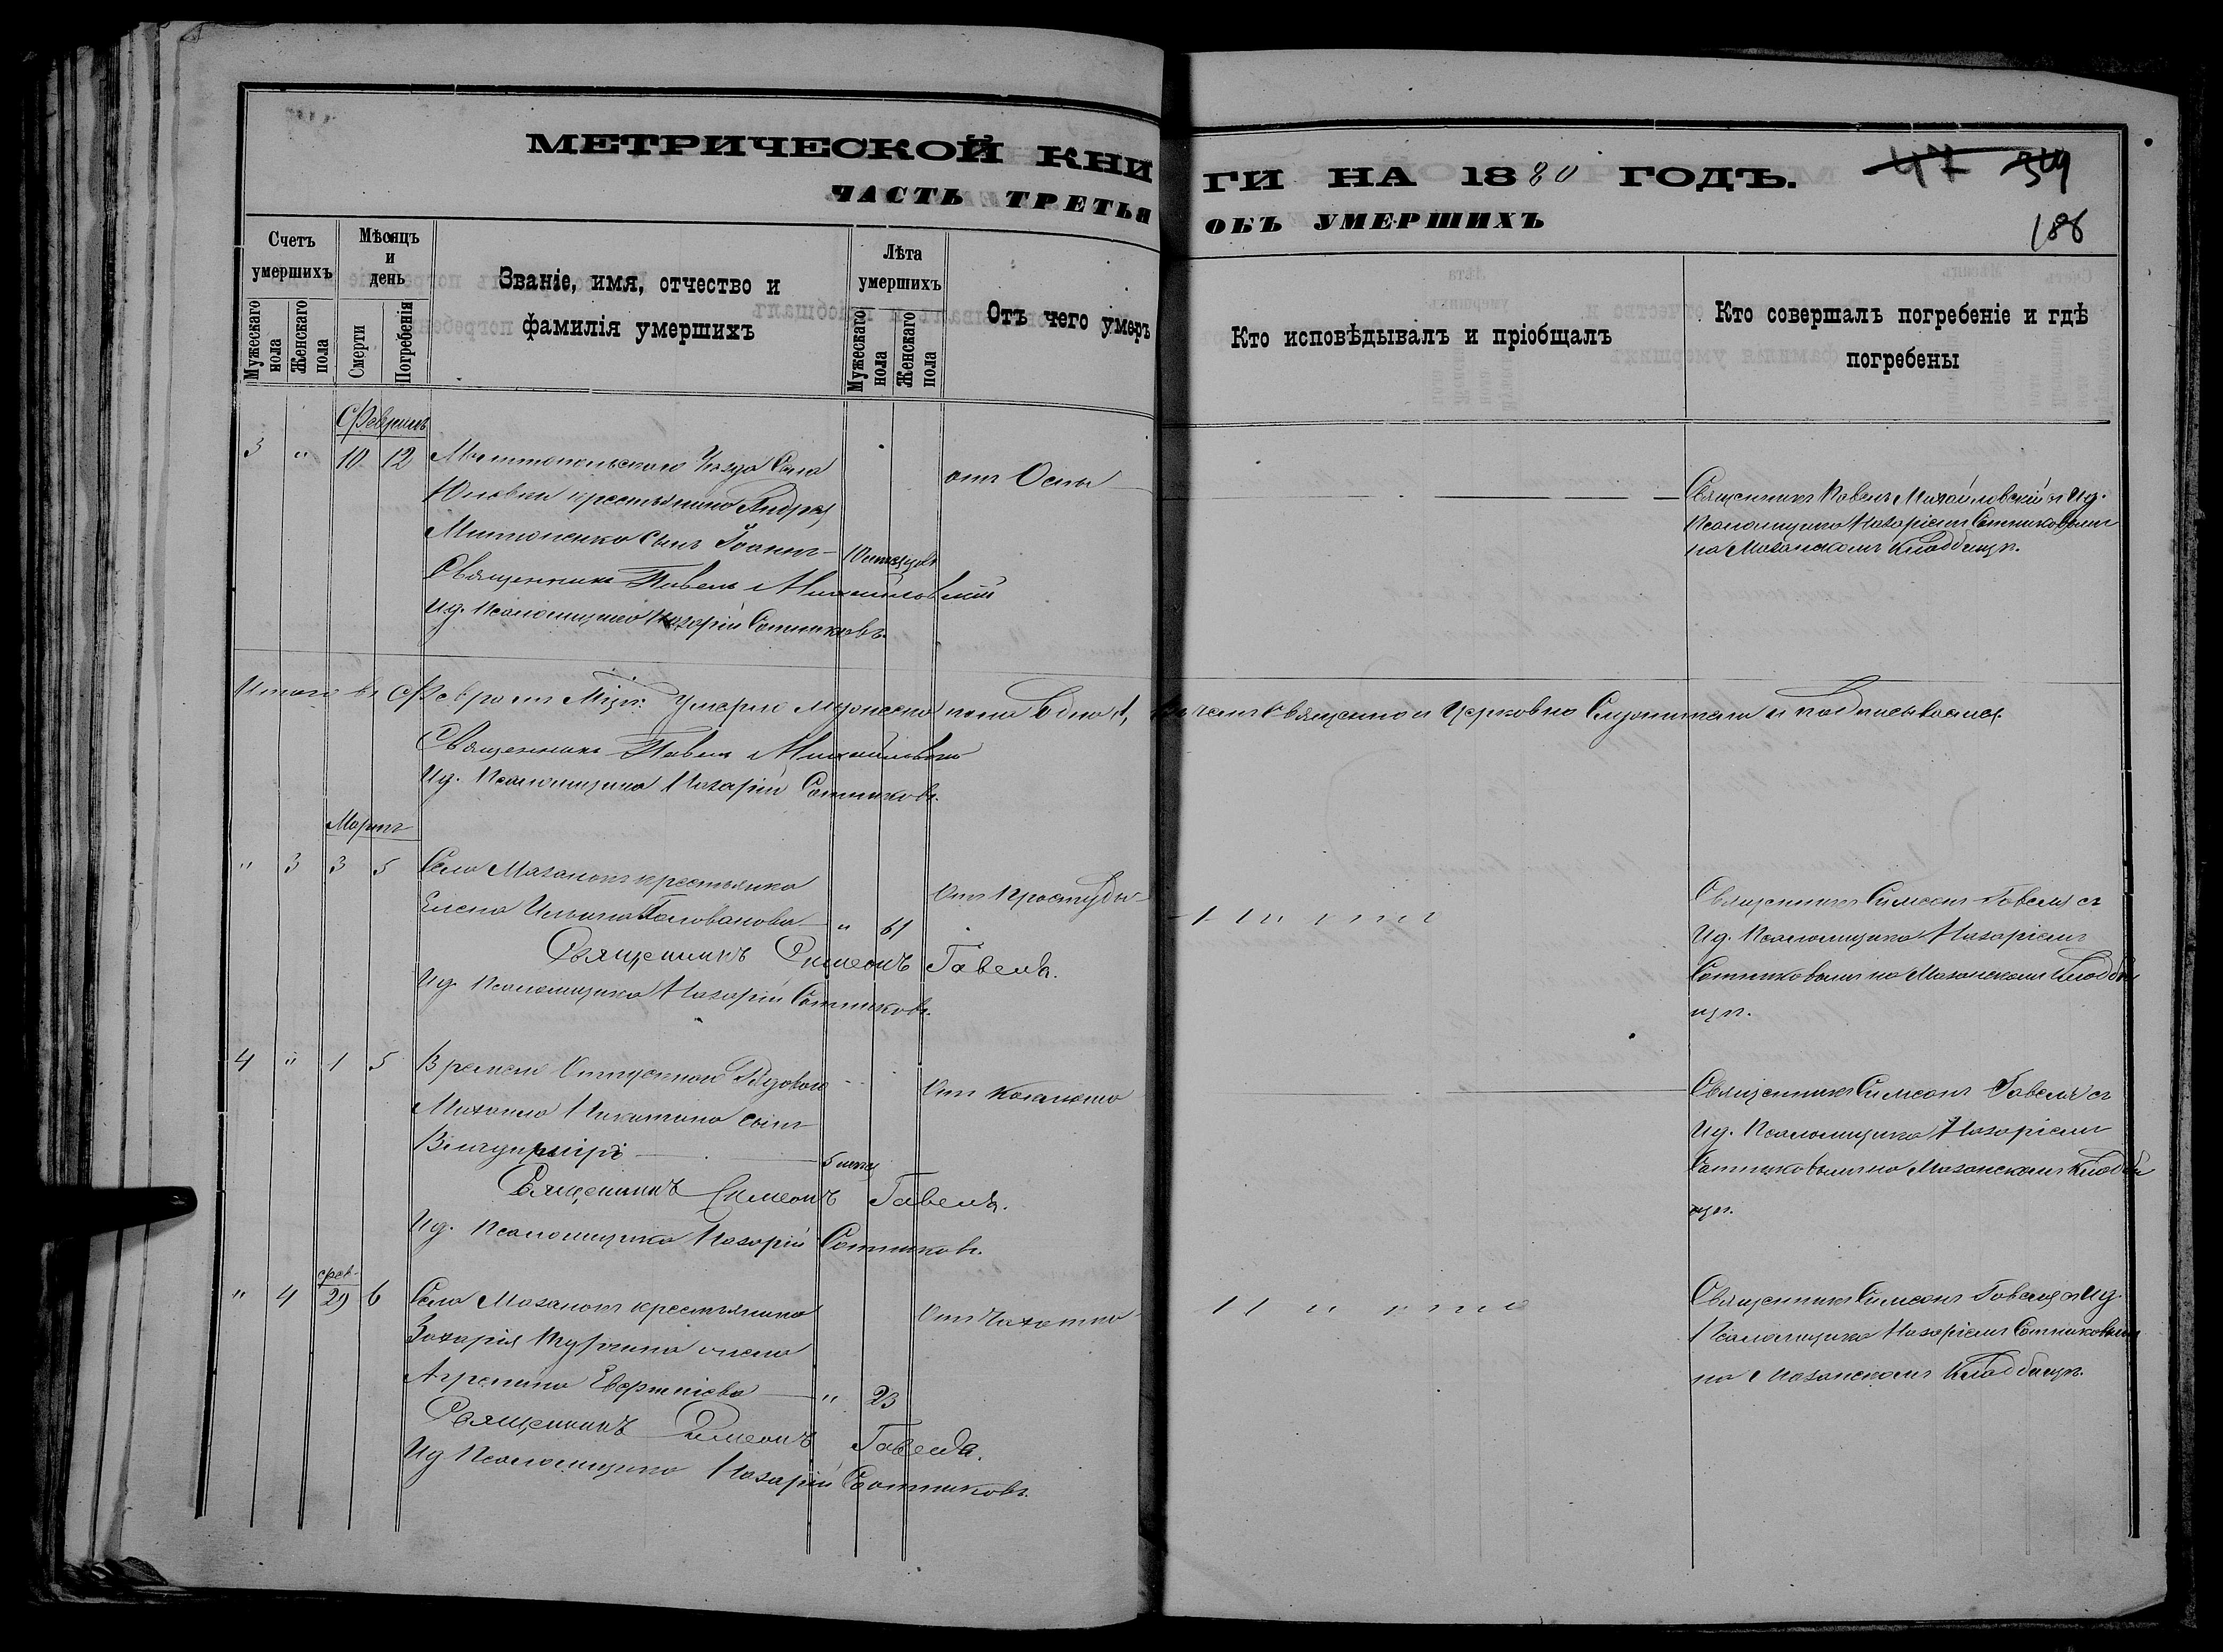 МЕТРИЧЕСКОЙ КНИ
ГИ НА 1880 ГОДЪ.
47 349
ЧАСТЬ ТРЕТЬЯ
ОБЪ УМЕРШИХЪ
186
Счетъ умершихъ
Мужескаго пола
Женскаго пола
Мѣсяцъ и день
Смерти
Погребенія
Званіе, имя, отчество и
фамилія умершихъ
Лѣта умершихъ
Мужескаго пола
Женскаго пола
Отъ чего умеръ
Кто исповѣдывалъ и пріобщалъ
Кто совершалъ погребеніе и гдѣ
погребены
Февраль
3 " 10 12 Мелитопольскаго Уезда Села
крестьянина Андрея
сынъ Іоаннъ
Священникъ Павелъ Михайловскій
Ид. Псаломщика Назарій Сотниковъ.
отъ Оспы
Священникъ Павелъ Михайловскій с Ид.
Псаломщика Назаріемъ Сотниковымъ
на Мазанскомъ Кладбищѣ.
Итого въ Февралѣ Мцѣ. Умерло мужеска пола одно 1, Въ чемъ Священно и Церковно Служители и подписываемся.
Священникъ Павелъ Михайловскій
Ид. Псаломщика Назарій Сотниковъ.
Мартъ
" 3 3 5 Села Мазанокъ крестьянка
Елена Ильина Голованова " 61
Священникъ Симеонъ Гавеля.
Ид. Псаломщика Назарій Сотниковъ.
Отъ Простуды
Священникъ Симеонъ Гавеля съ
Ид. Псаломщика Назаріемъ
Сотниковымъ на Мазанскомъ Кладби
щѣ.
4 " 1 5 Временно Отпускной Рядовой
Михаила Никитина сынъ
5 мец
Священникъ Симеонъ Гавеля.
Ид. Псаломщика Назарій Сотниковъ.
Отъ Кашлю
Священникъ Симеонъ Гавеля съ
Ид. Псаломщика Назаріемъ
Сотниковымъ на Мазанскомъ Кладби
щѣ.
фев.
" 4 29 6 Села Мазанокъ крестьянина
Захарія жена
Агрепина " 23
Священникъ Симеонъ Гавеля.
Ид Псаломщика Назарій Сотниковъ.
Отъ Чахотки
Священникъ Симеонъ Гавеля с Ид.
Псаломщика Назаріемъ Сотниковымъ
на Мазанскомъ Кладбищѣ.